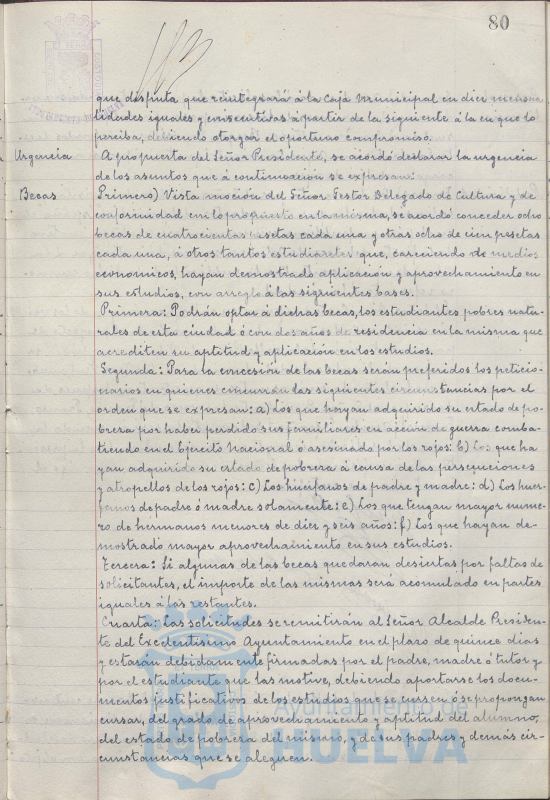 80
que disfruta que reintegrará á la Caja Municipal en diez mensua-
lidades iguales y consecutivas á partir de la siguiente á la en que lo
perciba, debiendo otorgar el oportuno compromiso.
Urgencia A propuesta del Señor Presidente, se acordó declarar la urgencia
de los asuntos que á continuación se expresan:
Becas Primero) Vista moción del Señor Gestor Delegado de Cultura y de
conformidad con lo propuesto en la misma, se acordó conceder ocho
becas de cuatrocientas pesetas cada una y otras ocho de cien pesetas
cada una, á otros tantos estudiantes que, careciendo de medios
económicos, hayan demostrado aplicación y aprovechamiento en
sus estudios, con arreglo á las siguientes bases.
Primera: Podrán optar á dichas becas, los estudiantes pobres natu-
rales de esta ciudad ó con dos años de residencia en la misma que
acrediten su aptitud y aplicación en los estudios.
Segunda: Para la concesión de las becas serán preferidos los peticio-
narios en quienes concurran las siguientes circunstancias por el
orden que se expresan: a) Los que hayan adquirido su estado de po-
breza por haber perdido sus familiares en acción de guerra comba-
tiendo en el Ejército Nacional ó asesinado por los rojos: b) Los que ha-
yan adquirido su estado de pobreza á causa de las persecuciones
y atropellos de los rojos: c) Los huérfanos de padre y madre: d) Los huér-
fanos de padre ó madre solamente: e) Los que tengan mayor nume-
ro de hermanos menores de diez y seis años: f) Los que hayan de-
mostrado mayor aprovechamiento en sus estudios.
Tercera: Si algunas de las becas quedaran desiertas por faltas de
solicitantes, el importe de las mismas será acumulado en partes
iguales á las restantes.
Cuarta: Las solicitudes se remitirán al Señor Alcalde Presiden-
te del Excelentísimo Ayuntamiento en el plazo de quince días
y estarán debidamente firmadas por el padre, madre ó tutor y
por el estudiante que las motive, debiendo aportarse los docu-
mentos justificativos de los estudios que se cursen ó se propongan
cursar, del grado de aprovechamiento y aptitud del alumno,
del estado de pobreza del mismo, y de sus padres y demás cir-
cunstancias que se aleguen.
Ayuntamiento de
HUELVA